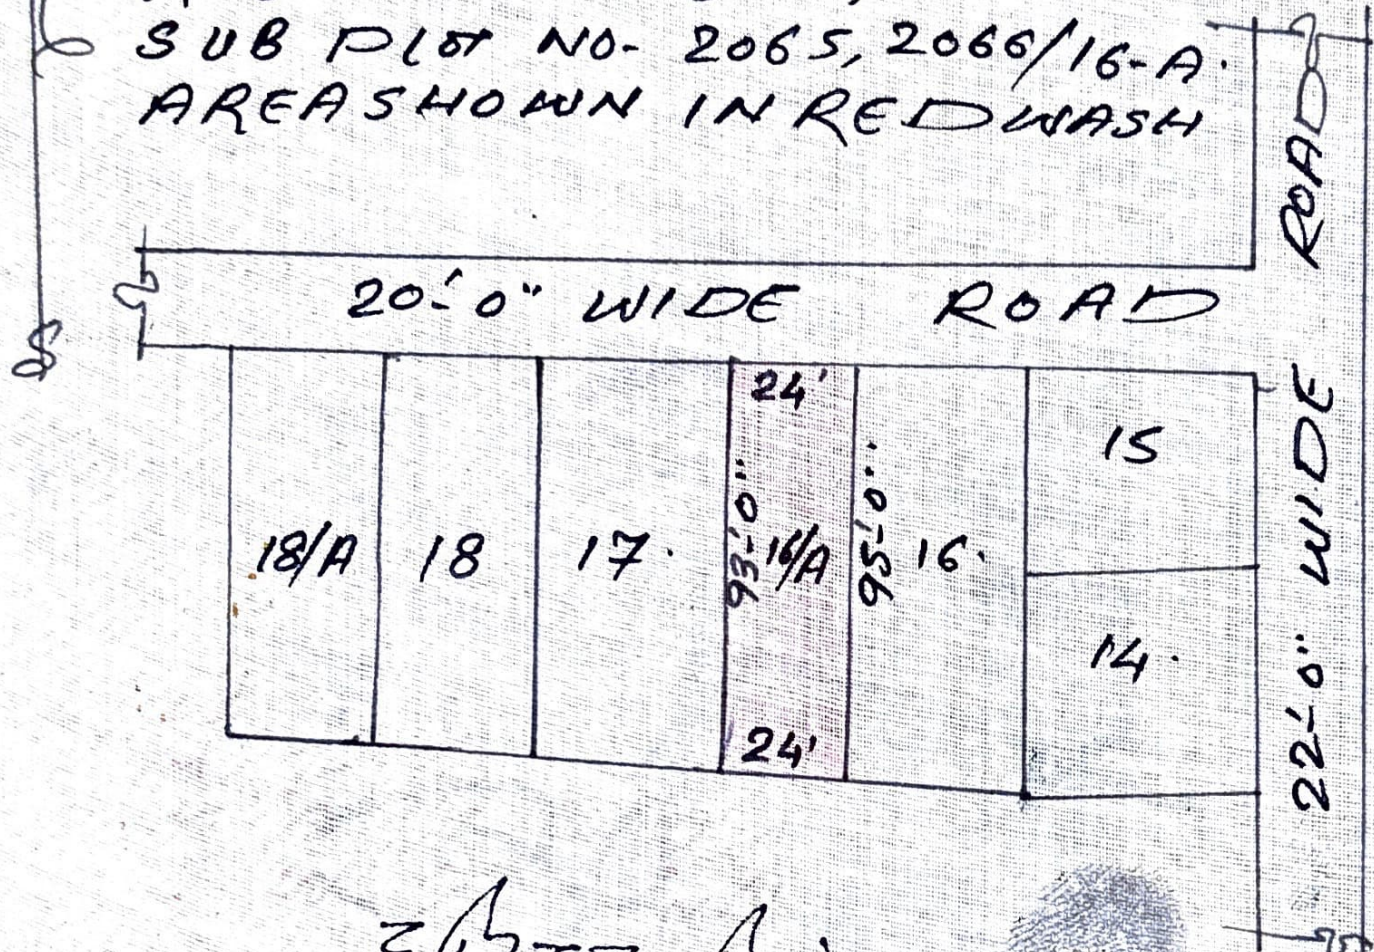 SUB PLOT NO- 2065, 2066/16-A.
AREA SHOWN IN RED WASH
20'-0" WIDE ROAD
22'-0" WIDE ROAD
24'
15
93'-0"
95'-0"
18/A 18 17. 16/A 16.
14.
24'